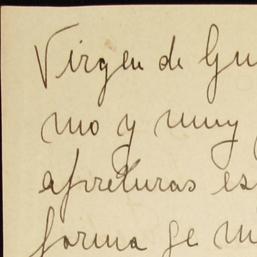 Virgen de Gu
mo y muy
apreturas es
forma ge m